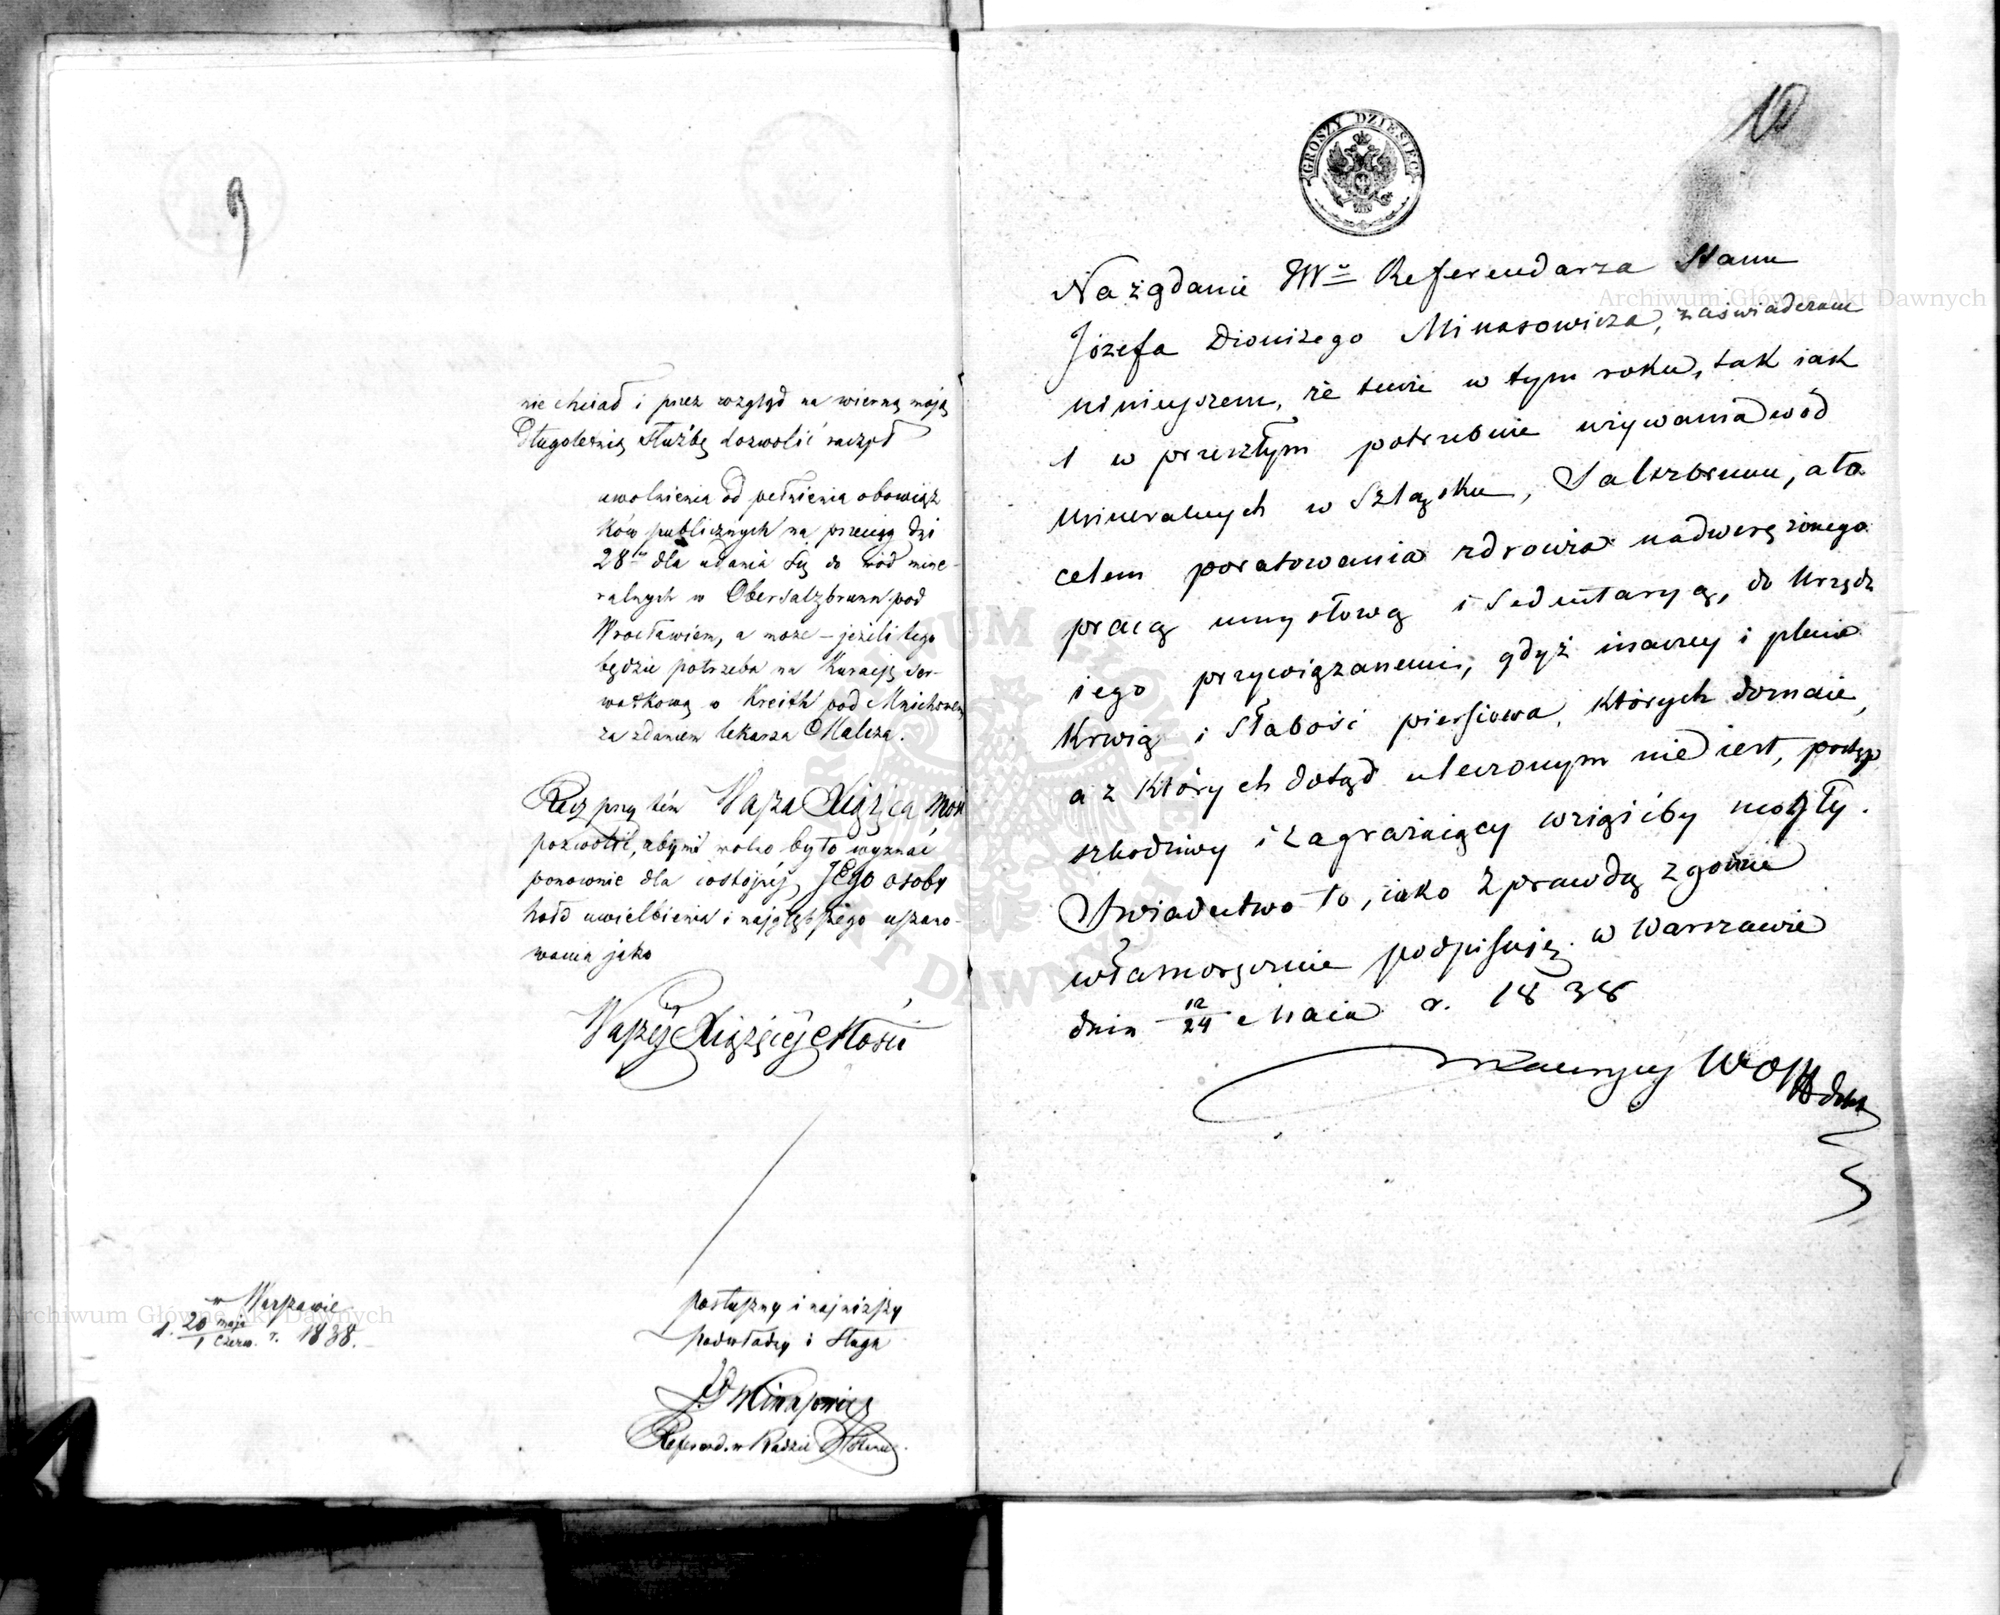 9
nie chciał i przez wzgląd na wierną moją
długoletnią służbę dozwolić raczył
uwolnienia od pełnienia obowiąz
ków publicznych na przeciąg dni
28 dla udania się do wód mine-
ralnych w Obersalzbrunn pod
Wrocławiem, a może – jeżeli tego
będzie potrzeba na kuracją ser-
watkową w Kreith pod Mnichowem
za zdaniem lekarza Malcza.
Racz przy tém Wasza Xiążęca Mość
pozwolić, aby mi wolno było wyznać
ponownie dla dostojnéj JEgo osoby
hołd uwielbienia i najgłębszego uszano-
wania jako
Waszéj Xiążęcéj Mości
w Warszawie
d. 20 maja / 1 Czerw. r. 1838.
posłuszny i najniższy
podwładny i sługa
JD Minasowicz
Referend. w Radzie Stanu
10
GROSZY DZIESIĘĆ
Na żądanie JW° Referendarza Stanu
Józefa Dionizego Minasowicza, zaświadczam
ninieyszem, że temże w tym roku, tak iak
i w przeszłym potrzebne używanie wód
mineralnych w Szląsku, Salzbrunn, a to
celem poratowania zdrowia nadwerężonego
pracą umysłową i sedentaryą, do Urzędu
iego przywiązanemi, gdyż inaczey i plucie
krwią i słabość piersiowa, których doznaie,
a z których dotąd uleczonym nie iest, postęp
szkodliwy i zagrażaiący wziąśćby mogły.
Świadectwo to, iako z prawdą zgodne
własnoręcznie podpisuję. w Warszawie
dnia 12/24 Maia r. 1838
Maurycy Wolff
Archiwum Główne Akt Dawnych
Archiwum Główne Akt Dawnych
ARCHIWUM GŁÓWNE AKT DAWNYCH